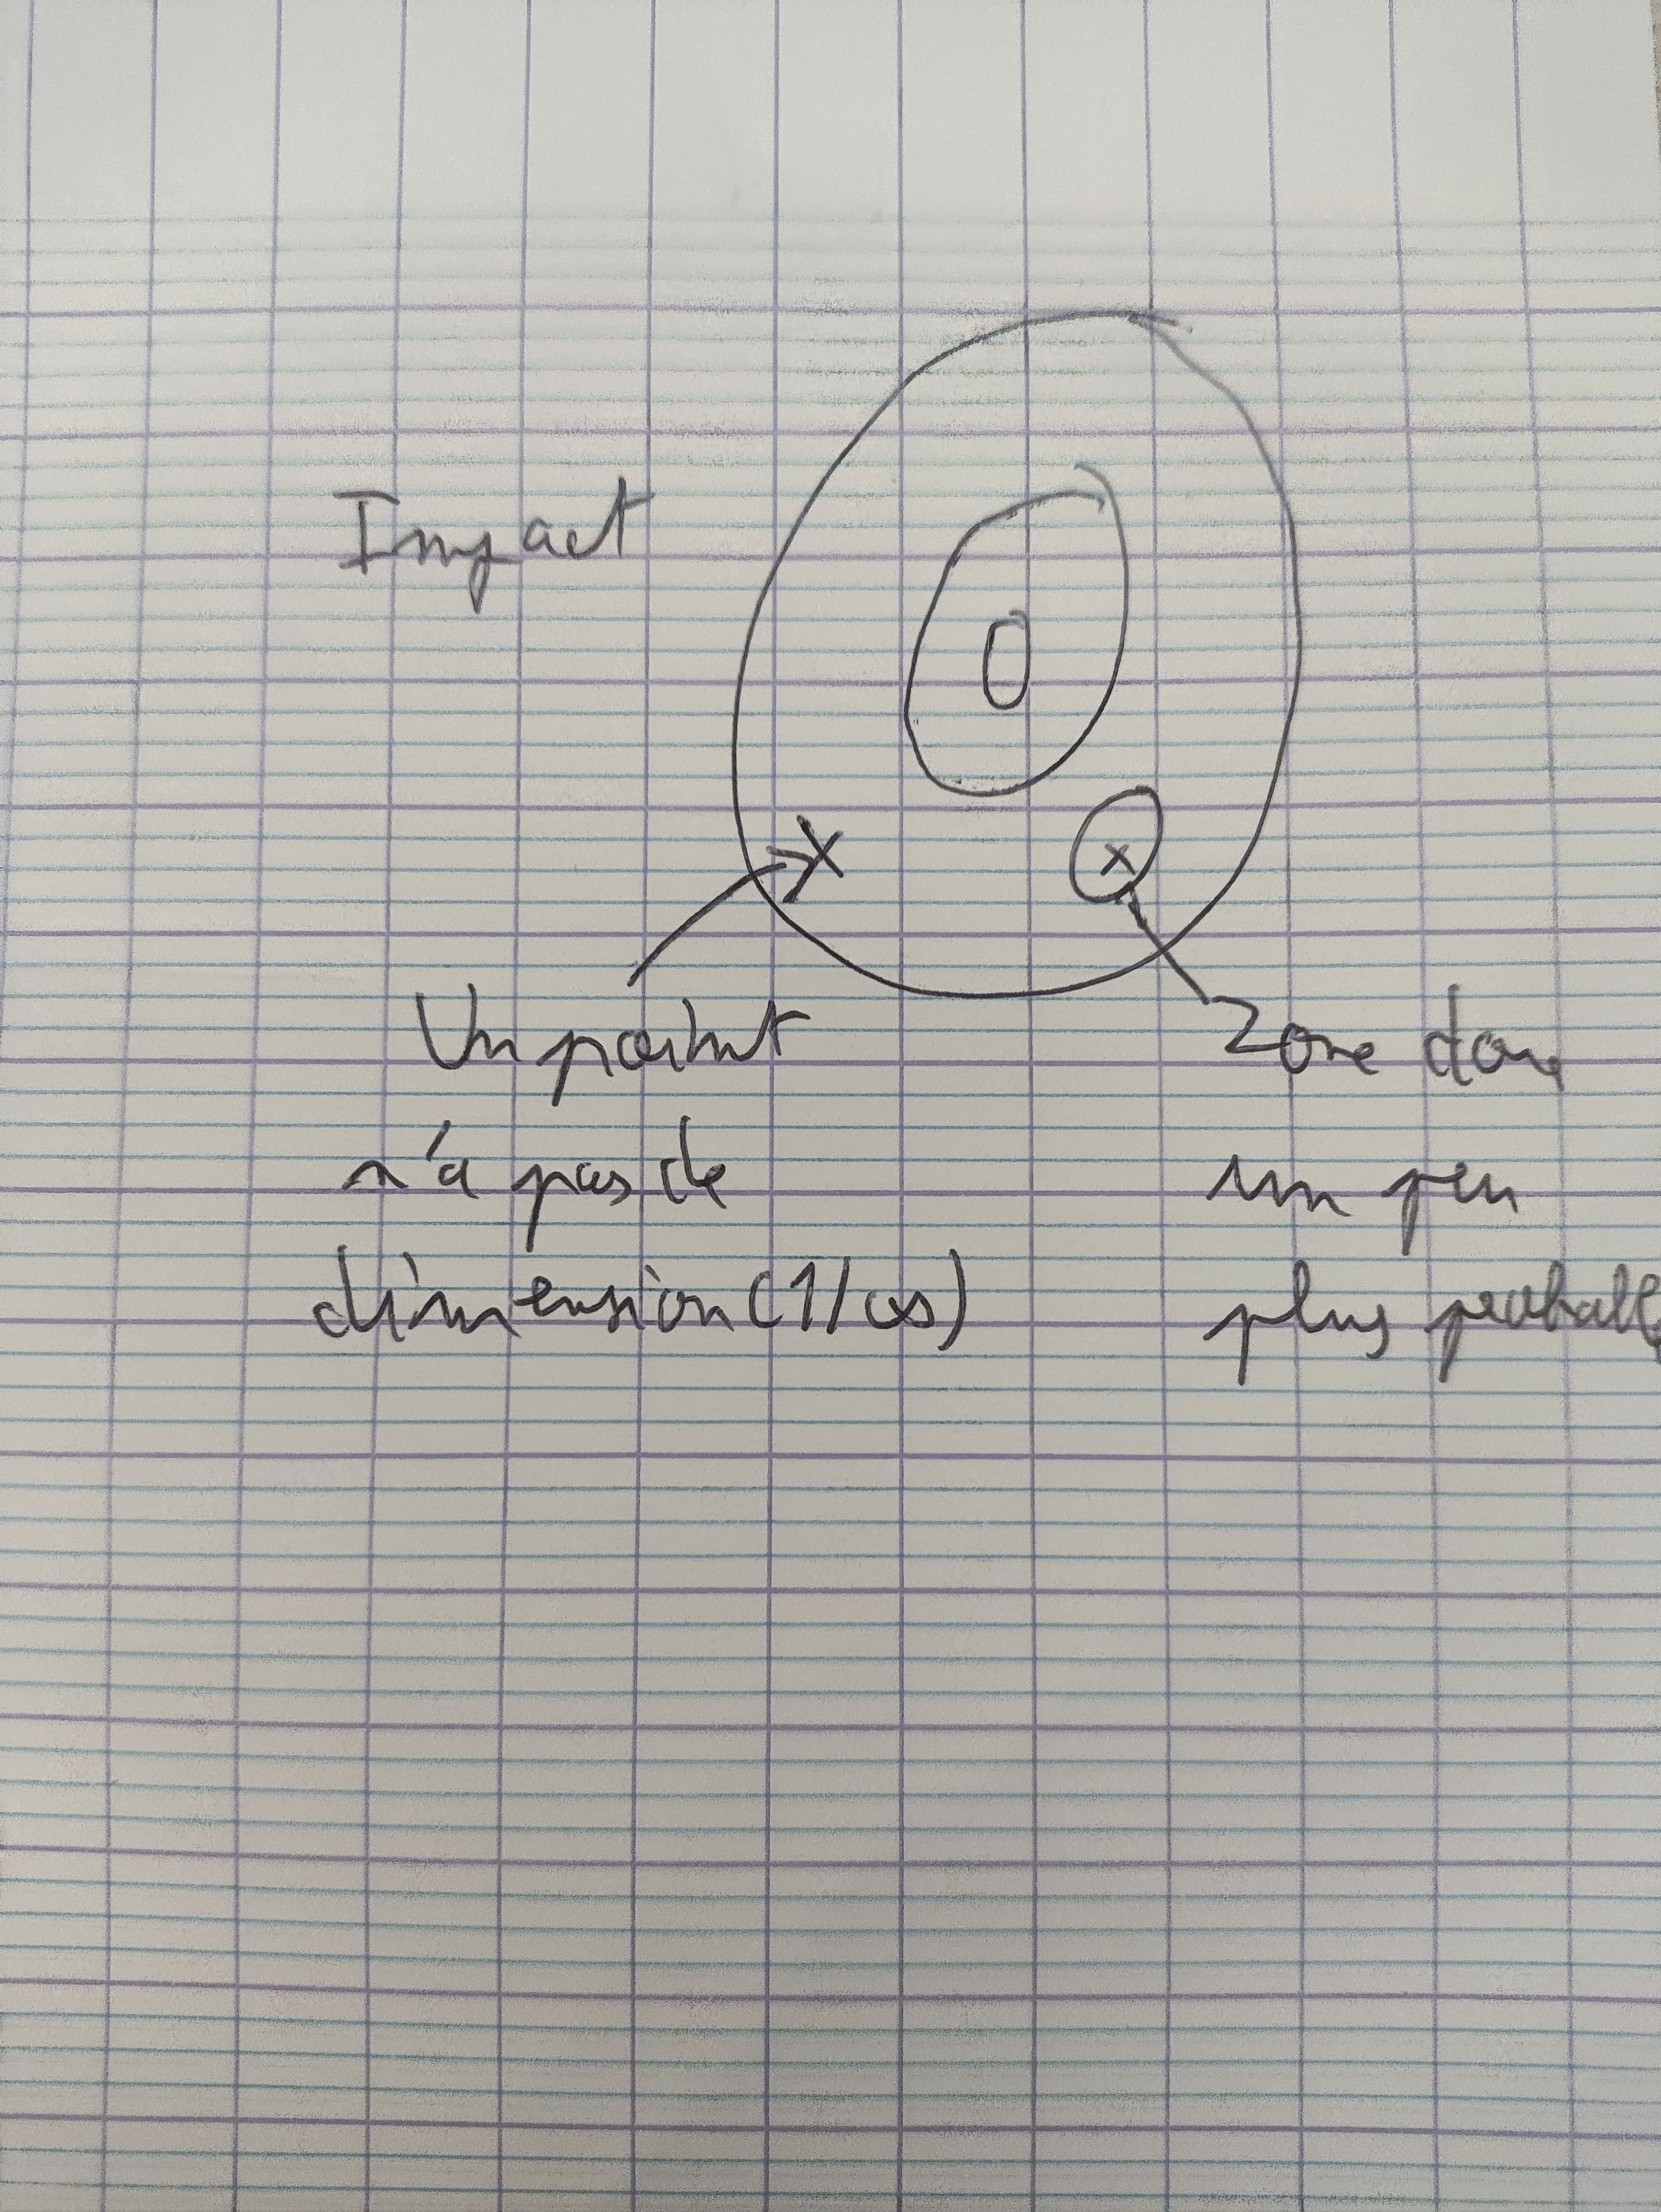 Impact
Un point
n'a pas de
dimension (1/∞)
Zone donc
un peu
plus probable